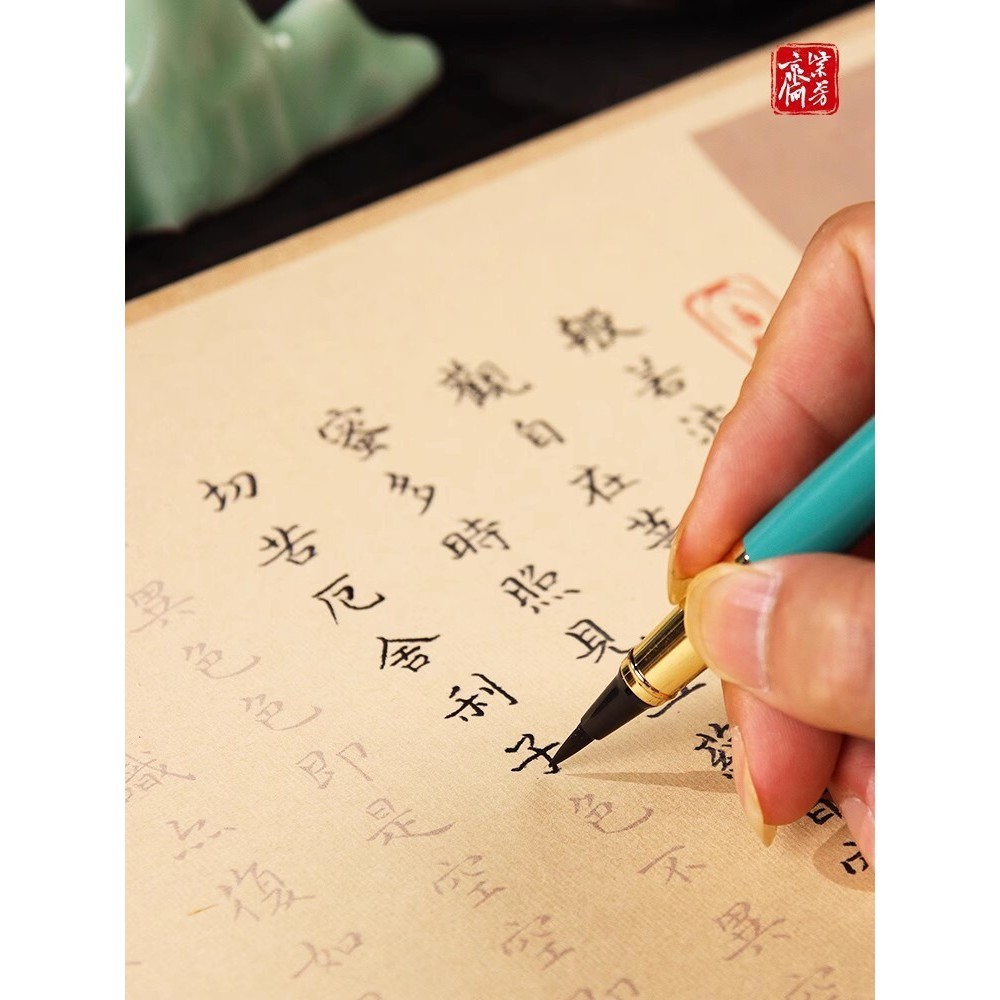 紫芳
般若波
觀自在菩
蜜多時照見
切苦厄舍利子色不異
異色色即是空空即
識亦復如